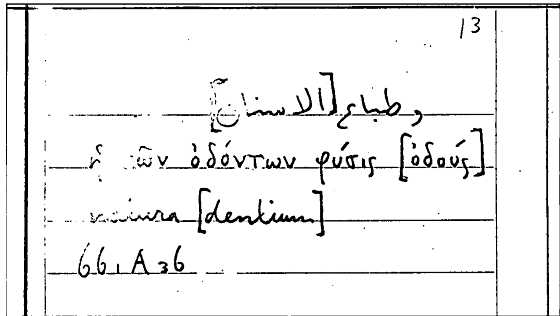 13
طباع [الاسنان]،
ἡ τῶν ὀδόντων φύσις [ὀδούς]
natura [dentium]
661 A 36